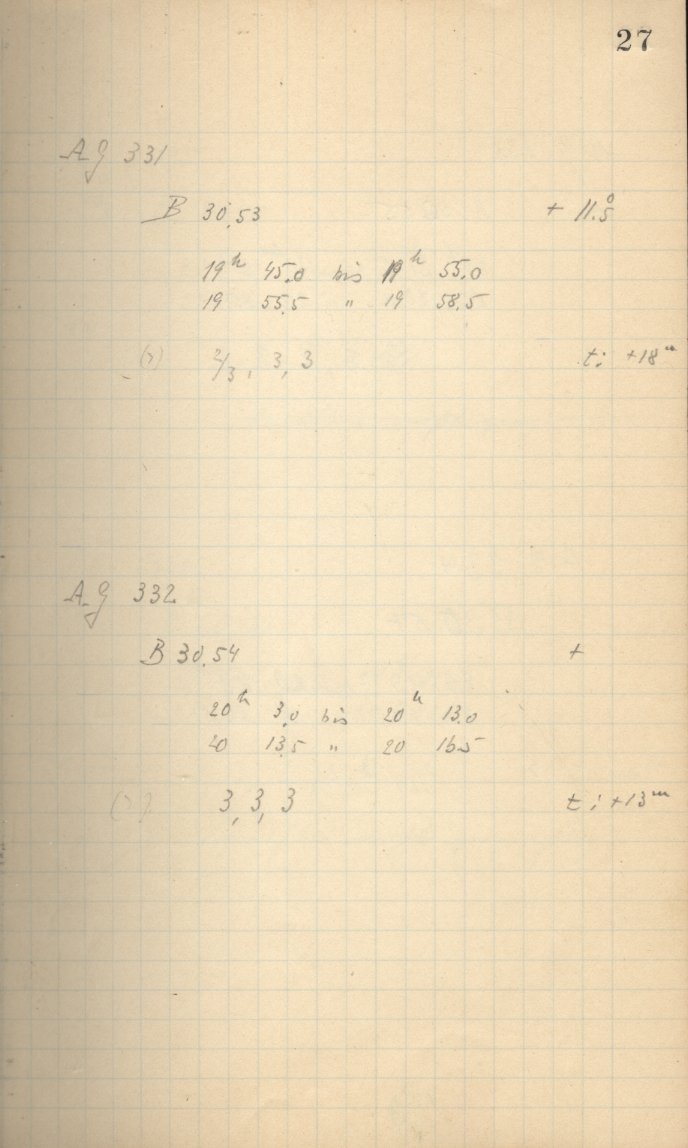 27
AG 331
B 30.53 + 11.5°
19h 45.0 bis 19h 55.0
19 55.5 " 19 58.5
2/3, 3, 3 t: +18m
AG 332
B 30.54 +
20h 3.0 bis 20h 13.0
20 13.5 " 20 16.5
3, 3, 3 t: +13m